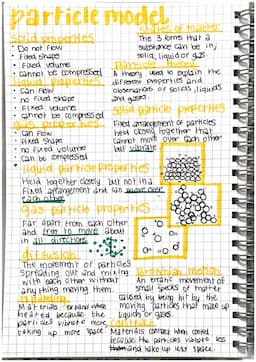 particle model
solid properties
• Do not flow
• Fixed shape
• Fixed volume
• cannot be compressed
liquid properties
• can flow
• no fixed shape
• Fixed volume
• cannot be compressed
gas properties
• can flow
• Fixed shape
• no fixed volume
• can be compressed
states of matter
The 3 forms that a
substance can be in;
solid, liquid or gas.
particle theory
A theory used to explain the
different properties and
observations of solids, liquids
and gases.
solid particle properties
Fixed arrangement of particles
held closely together that
cannot move over each other
but vibrate
liquid particle properties
Held together closely but not in a
Fixed arrangement and can move over
each other
gas particle properties
Far apart from each other
and free to move about
in all directions
diffusion
The movement of particles
spreading out and mixing
with each other without
anything moving them.
expanding
Matter expand when
heated because the
particles vibrate more,
taking up more space
Brownian motion
An erratic movement of
small specks of matter
caused by being hit by the
moving particles that make up
liquids or gases.
contract
Materials contract when cooled
because the particles vibrate less
and take up less space.